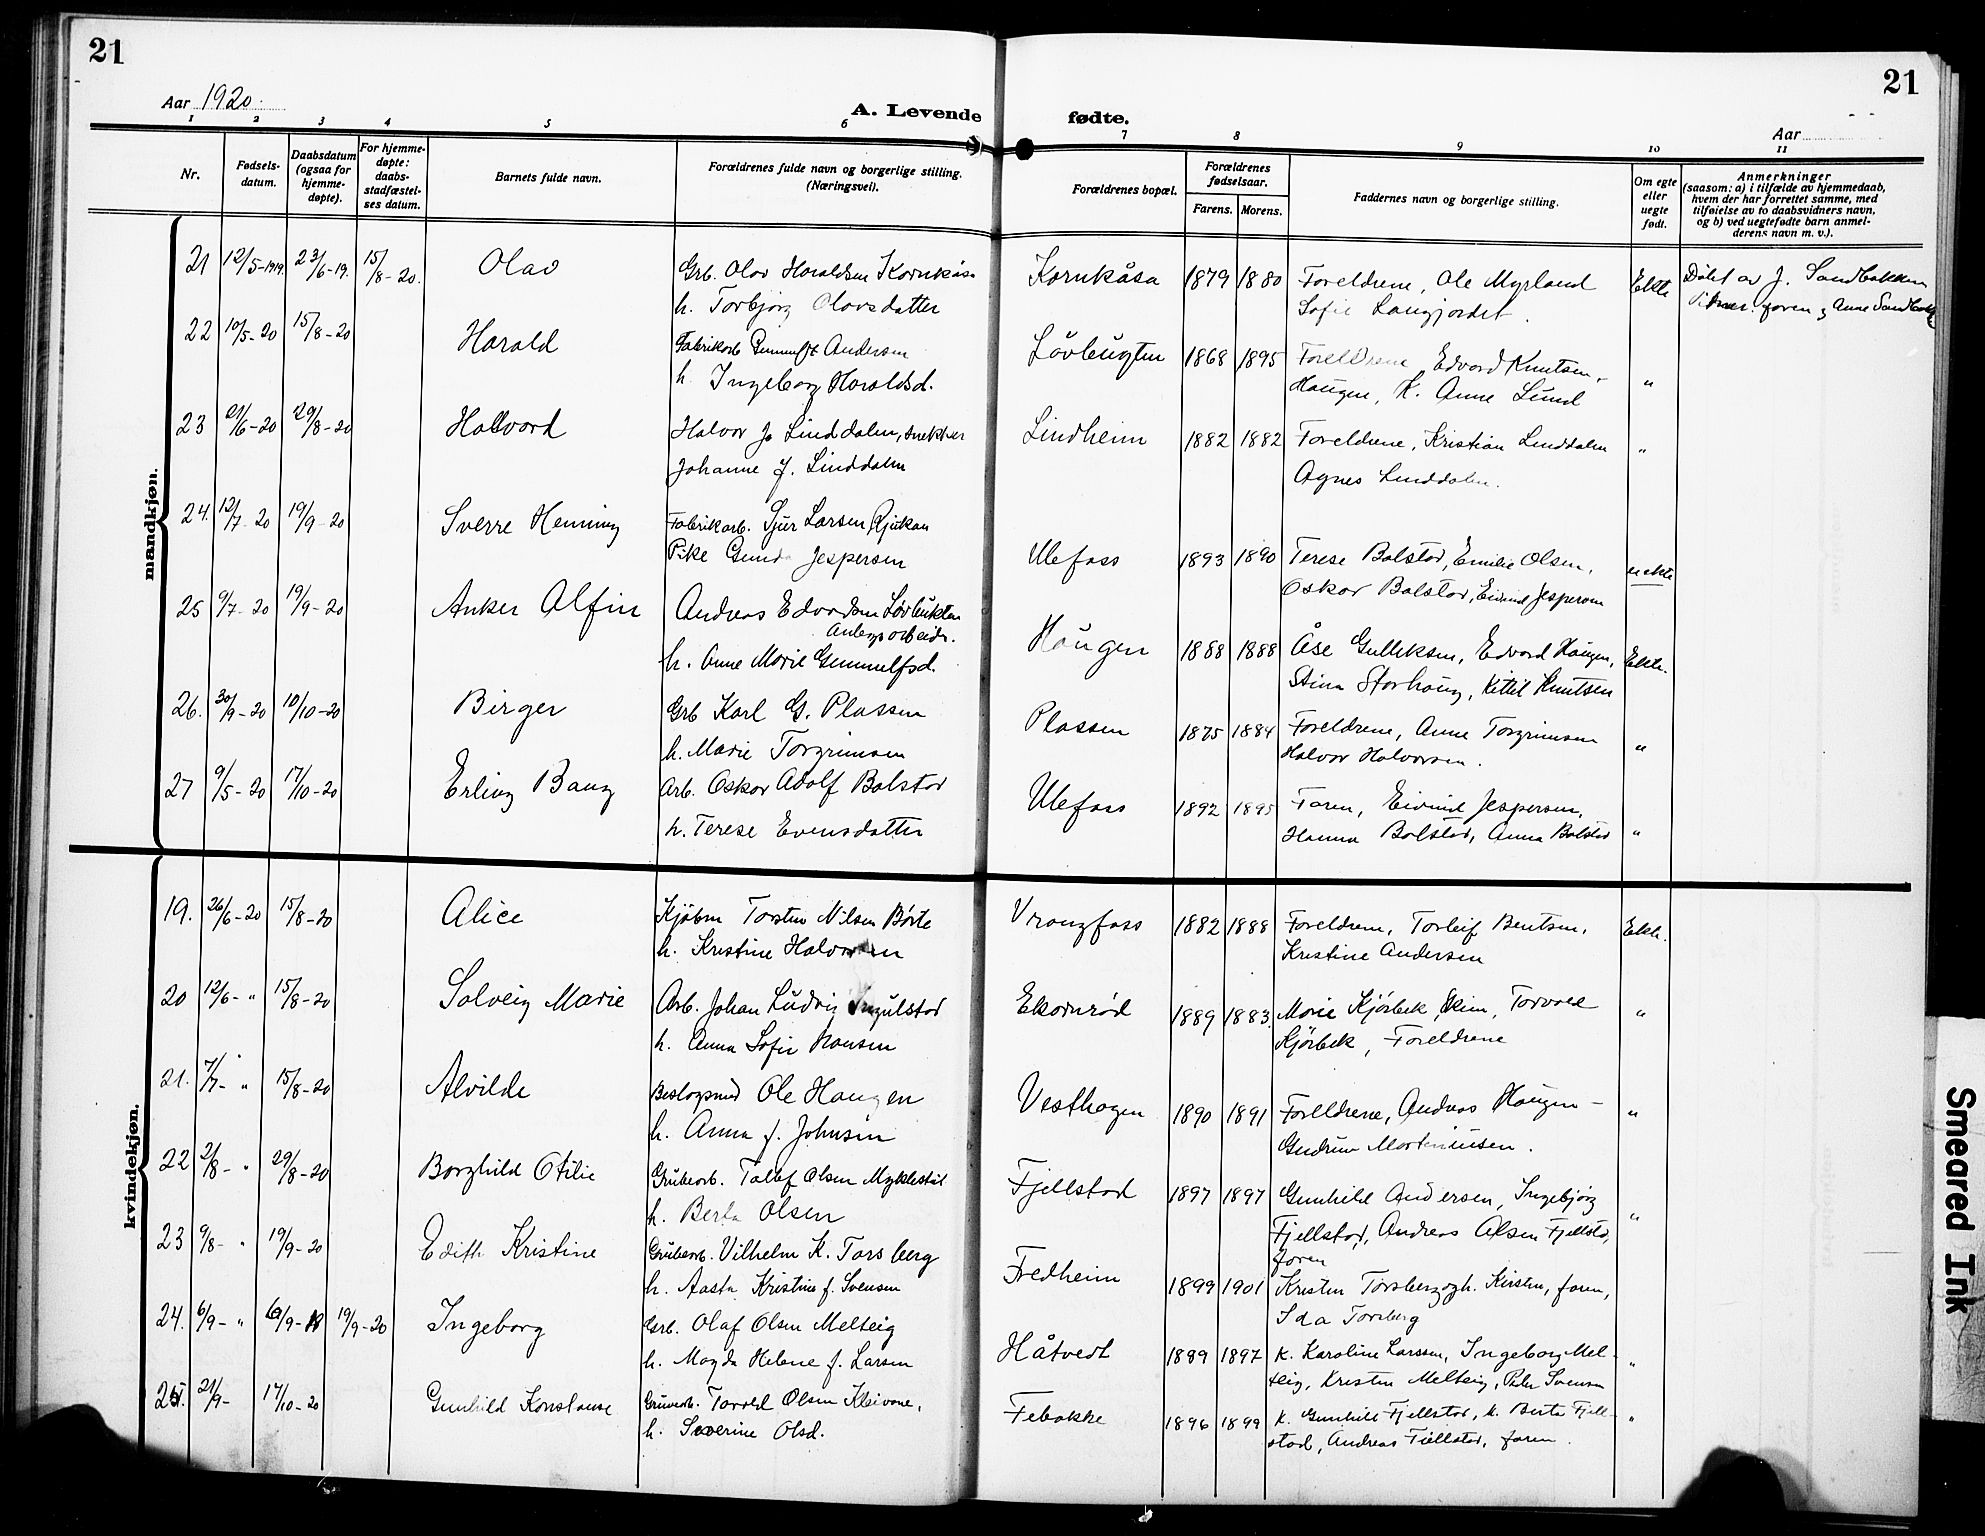 21
21
Aar 1920.
A. Levende fødte.
Aar
1 2 3 4 5 6 7 8 9 10 11
Nr.
Fødsels-
datum.
Daabsdatum
(ogsaa for
hjemme-
døpte).
For hjemme-
døpte:
daabs-
stadfæstel-
ses datum.
Barnets fulde navn.
Forældrenes fulde navn og borgerlige stilling.
(Næringsvei).
Forældrenes bopæl.
Forældrenes
fødselsaar.
Farens. Morens.
Faddernes navn og borgerlige stilling.
Om egte
eller
uegte
født.
Anmerkninger
(saasom: a) i tilfælde av hjemmedaab,
hvem der har forrettet samme, med
tilføielse av to daabsvidners navn,
og b) ved uegtefødte barn anmel-
derens navn m. v.).
mandkjøn.
21 12/5-1919. 23/6-19. 15/8-20. Olav Grb. Olav Haraldsen Kornkåsa Kornkåsa 1879 1880 Foreldrene, Ole Myrland Ekte Døbt av J. Sandbakken
h. Torbjørg Olavsdatter Sofie Langjordet. faren, Anne Sandbakk
22 10/5-20 15/8-20 Harald Fabrikarb. Gunnulf Andersen Løvbugten 1868 1895 Foreldrene, Edvard Knutsen,
h. Ingeborg Haraldsd. Haugen, K. Anne Lund "
23 21/6-20 29/8-20 Halvord Halvor J. Linddalen, snekker Lindheim 1882 1882 Foreldrene, Kristian Linddalen "
Johanne f. Linddalen Agnes Linddalen.
24. 12/7-20 19/9-20 Sverre Henning Fabrikarb. Sjur Larsen Rjukan
Pike Gunda Jespersen Ulefoss 1893 1890 Terese Bolstad, Emilie Olsen, uekte
Oskar Bolstad, Eivind Jespersen
25 9/7-20 19/9-20 Anker Alfin Andreas Edvardsen Løvbukten
Anlegsarbeider.
h. Anne Marie Gunnulfsd. Haugen 1888 1888 Åse Gulliksen, Edvard Haugen, Ekte.
Stina Storhaug, Kittil Knutsen
26. 30/9-20 10/10-20 Birger Grb Karl G. Plassen Plassen 1875 1884 Foreldrene, Anne Torgrimsen "
h. Marie Torgrimsen Halvor Halvorsen.
27 9/5-20 17/10-20 Erling Bang Arb. Oskar Adolf Bolstad Ulefoss 1892 1895 Faren, Eivind Jespersen,
h. Terese Evensdatter Hanna Bolstad, Anna Bolstad "
kvindekjøn.
19. 26/6-20 15/8-20 Alice Kjøbm Torsten Nilsen Børte Vrangfoss 1882 1888 Foreldrene, Torleif Bentsen, Ekte.
h. Kristine Halvorsen Kristine Andersen
20 12/6-" 15/8-20 Solveig Marie Arb. Johan Ludvig Ingulstad Ekornrød 1889 1883. Marie Kjørbek, Skien, Torvald "
h. Anna Sofie Hansen Kjørbek, Foreldrene
21. 7/7-" 15/8-20 Alvilde Beslagsmed Ole Haugen Vesthagen 1890 1891 Foreldrene, Andreas Haugen- "
h. Anna f. Johnsen Gudrun Martiniusen.
22 2/8-" 29/8-20 Borghild Otilie Grubearb. Tallef Olsen Myklestøl Fjellstad 1897 1897 Gunhild Andersen, Ingebjørg "
h. Berta Olsen Fjellstad, Andreas Olsen Fjellstad,
faren
23 9/8-" 19/9-20 Edith Kristine Grubearb. Vilhelm K. Torsberg Fredheim 1899 1901 Kristen Torsberg og h. Kirsten, faren,
h. Aasta Kristine f. Svensen Ida Torsberg
24. 6/9-" 19/9-20 Ingeborg Grb. Olaf Olsen Melteig Håtvedt 1899 1897 K. Karoline Larssen, Ingeborg Mel- "
h. Magda Helene f. Larsen teig, Kristen Melteig, Peder Svensen
25. 21/9- 17/10-20 Gunhild Konstanse Grubearb. Torvald Olsen Kleivane, Febakke 1896 1899 K. Gunhild Fjellstad, K. Berta Fjell- "
h. Severine Olsd. stad, Andreas Fjellstad, faren.
Smeared Ink